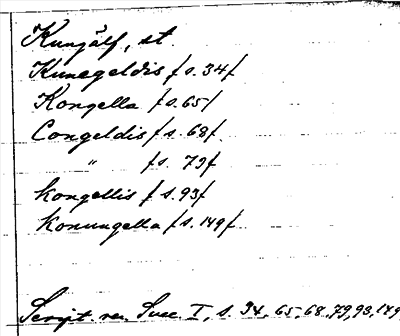 Kungälf, st.
Kunegeldis / s. 34 /
Kongella / s. 65 /
Congeldis / s. 68 /
" / s. 79 /
Kongellis / s. 93 /
Konungella / s. 149 /
Script. rer. Suec. I, s. 34, 65, 68, 79, 93, 149